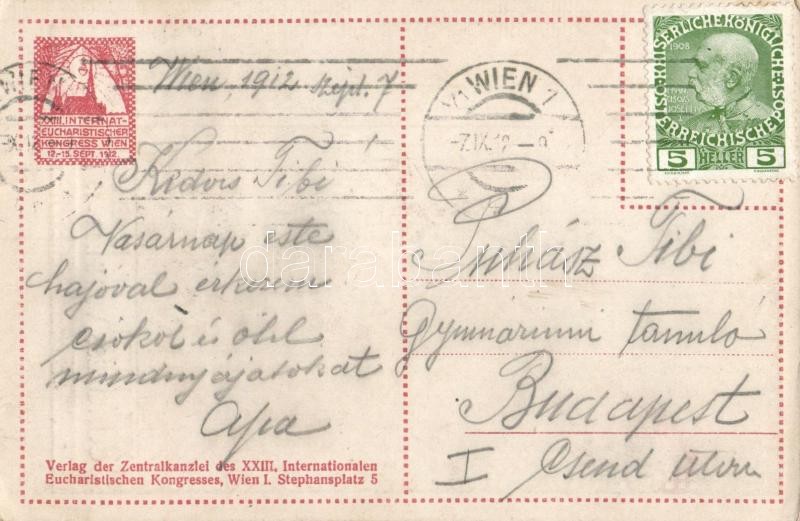 XXIII. INTERNAT-
EUCHARISTISCHER
KONGRESS WIEN
12.-15. SEPT. 1912
Wien, 1912 Szept. 7
Kedves Tibi
Vasárnap este
hajóval érkezem
csókol és ölel
mindnyájatokat
apa
Verlag der Zentralkanzlei des XXIII. Internationalen
Eucharistischen Kongresses, Wien I. Stephansplatz 5
WIEN
1 WIEN 1
-7.IX.12
KAISERLICHE KÖNIGLICHE
ÖSTERREICHISCHE POST
1908
5 HELLER 5
Juhász Tibi
Gymnasiumi tanuló
Budapest
I Csend utca
darabanth